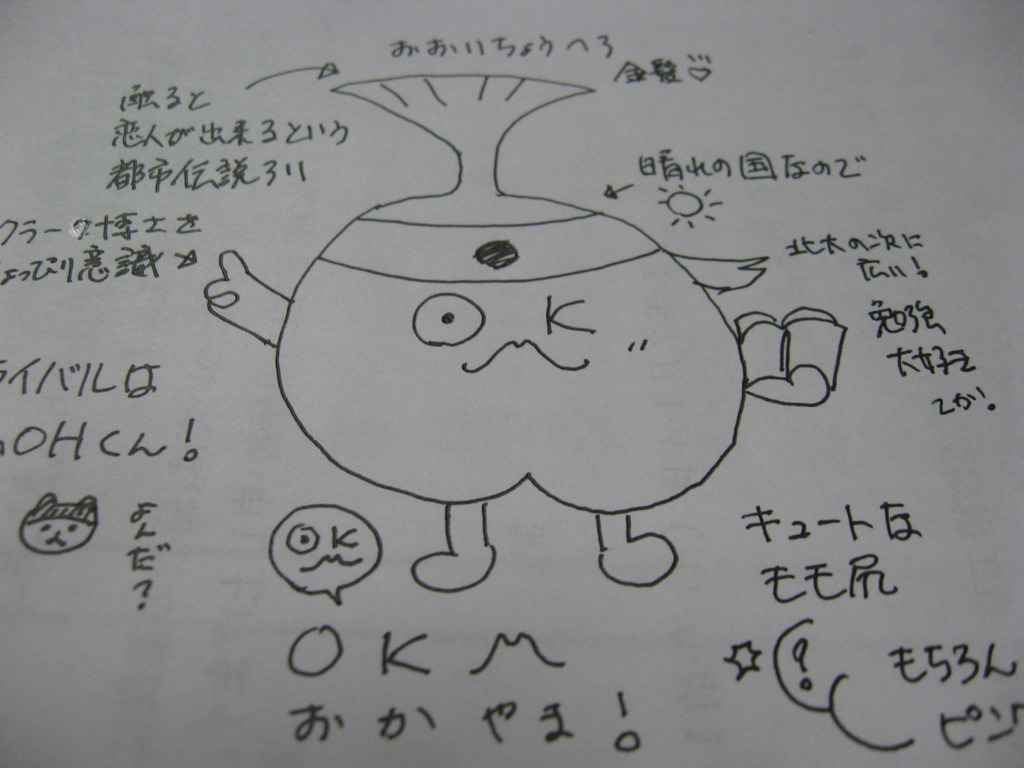 おおいちょうヘア
金髪
触ると
恋人が出来るという
都市伝説あり
晴れの国なので
クラーク博士を
ょっぴり意識
北大の次に
広い!
勉強
大好き
O K
ライバルは
OHくん!
よんだ?
O K
キュートな
モモ尻
O K M
おかやま!
?
もちろん
ピン